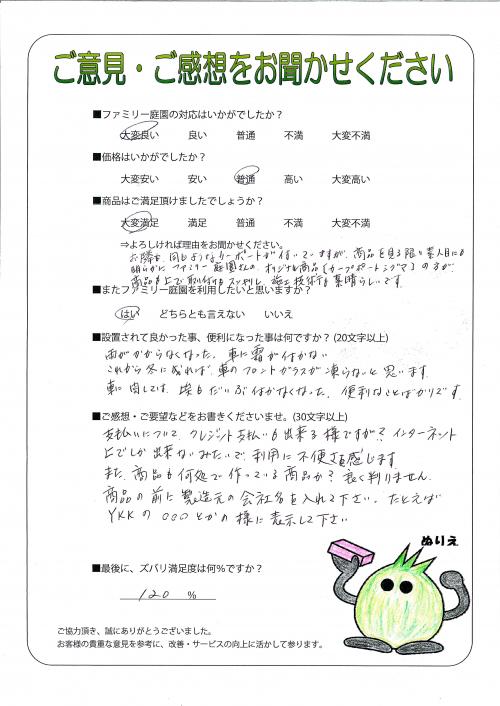 ご意見・ご感想をお聞かせください
■ファミリー庭園の対応はいかがでしたか？
大変良い 良い 普通 不満 大変不満
■価格はいかがでしたか？
大変安い 安い 普通 高い 大変高い
■商品はご満足頂けましたでしょうか？
大変満足 満足 普通 不満 大変不満
⇒よろしければ理由をお聞かせください。
お隣も、同じようなカーポートが付いていますが、商品を見る限り素人目にも
明らかに ファミリー庭園さんの、オリジナル商品(カーブポートシグマ)の方が、
商品も上で取り付けもスッキリし、施工技術も素晴らしいです。
■またファミリー庭園を利用したいと思いますか？
はい どちらとも言えない いいえ
■設置されて良かった事、便利になった事は何ですか？(20文字以上)
雨がかからなくなった。車に霜が付かない
これから冬になれば、車のフロントガラスが凍らないと思います。
車に関しては、埃もだいぶ付かなくなった。便利なことばかりです。
■ご感想・ご要望などをお書きくださいませ。(30文字以上)
支払いについて、クレジット支払いも出来る様ですが？インターネット
上でしか出来ないみたいで、利用に不便さを感じます
また、商品も何処で作っている商品か？良く判りません。
商品の前に製造元の会社名を入れて下さい。たとえば
YKKの ○○○とかの様に表示して下さい
ぬりえ
■最後に、ズバリ満足度は何％ですか？
120 %
ご協力頂き、誠にありがとうございました。
お客様の貴重な意見を参考に、改善・サービスの向上に活かして参ります。